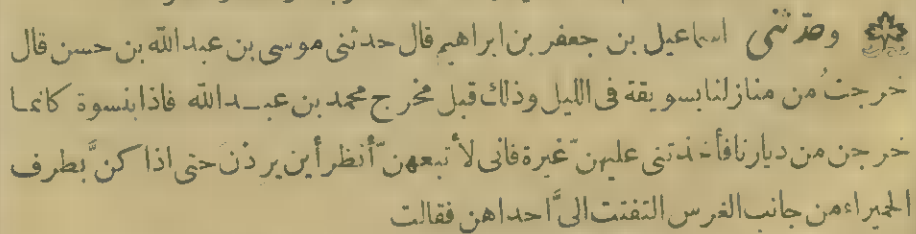 وحدّثنى اسماعيل بن جعفر بن ابراهيم قال حدثنى موسى بن عبدالله بن حسن قال
خرجتُ من منازلنا بسويقة فى الليل وذلك قبل مخرج محمد بن عبـدالله فاذا بنسوة كانما
خرجن من ديارنا فأخذتنى عليهنّ غيرة فانى لأتبعهنّ أنظر أين يردن حتى اذا كنّ بطرف
الحميراء من جانب الغرس التفتت الىّ احداهن فقالت